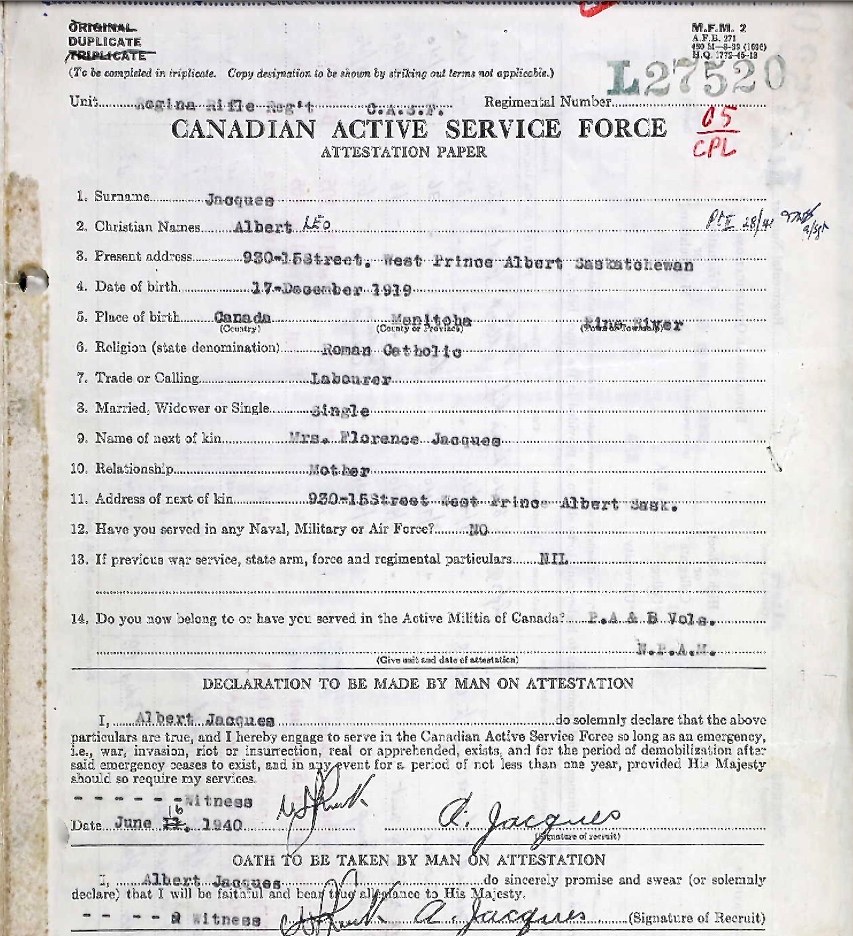 ORIGINAL
DUPLICATE
TRIPLICATE
M.F.M. 2
A.F.B. 271
H.Q. 1772-45-13
(To be completed in triplicate. Copy designation to be shown by striking out terms not applicable.)
L27520
Unit Regina Rifle Reg't C.A.S.F. Regimental Number
CANADIAN ACTIVE SERVICE FORCE
ATTESTATION PAPER
CPL
1. Surname Jacques
2. Christian Names Albert LEO
Pt II 28/41
3. Present address 930-15Street. West Prince Albert Saskatchewan
4. Date of birth 17-December 1919
5. Place of birth Canada Manitoba River
(Country) (County or Province)
6. Religion (state denomination) Roman Catholic
7. Trade or Calling Labourer
8. Married, Widower or Single Single
9. Name of next of kin Mrs. Florence Jacques
10. Relationship Mother
11. Address of next of kin 930-15Street West Prince Albert Sask.
12. Have you served in any Naval, Military or Air Force? NO
13. If previous war service, state arm, force and regimental particulars NIL
14. Do you now belong to or have you served in the Active Militia of Canada? P.A & B Vols.
N.P.A.M.
(Give unit and date of attestation)
DECLARATION TO BE MADE BY MAN ON ATTESTATION
I, Albert Jacques do solemnly declare that the above
particulars are true, and I hereby engage to serve in the Canadian Active Service Force so long as an emergency,
i.e., war, invasion, riot or insurrection, real or apprehended, exists, and for the period of demobilization after
said emergency ceases to exist, and in any event for a period of not less than one year, provided His Majesty
should so require my services.
- - - - - -Witness
Date June 16 1940 A. Jacques
(Signature of recruit)
OATH TO BE TAKEN BY MAN ON ATTESTATION
I, Albert Jacques do sincerely promise and swear (or solemnly
declare) that I will be faithful and bear true allegiance to His Majesty.
Witness A. Jacques (Signature of Recruit)